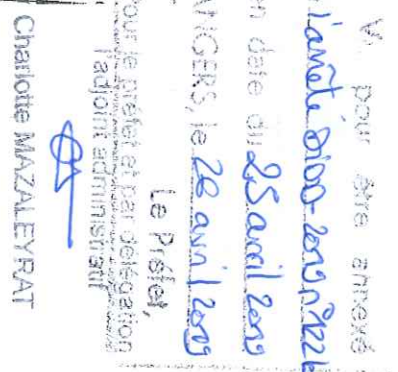 pour être annexé
l'arrêté DIDD-2019 n°122
n date du 25 avril 2019
ANGERS, le 26 avril 2019
Le Préfet,
our le préfet et par délégation
l'adjoint administratif
Charlotte MAZALEYRAT